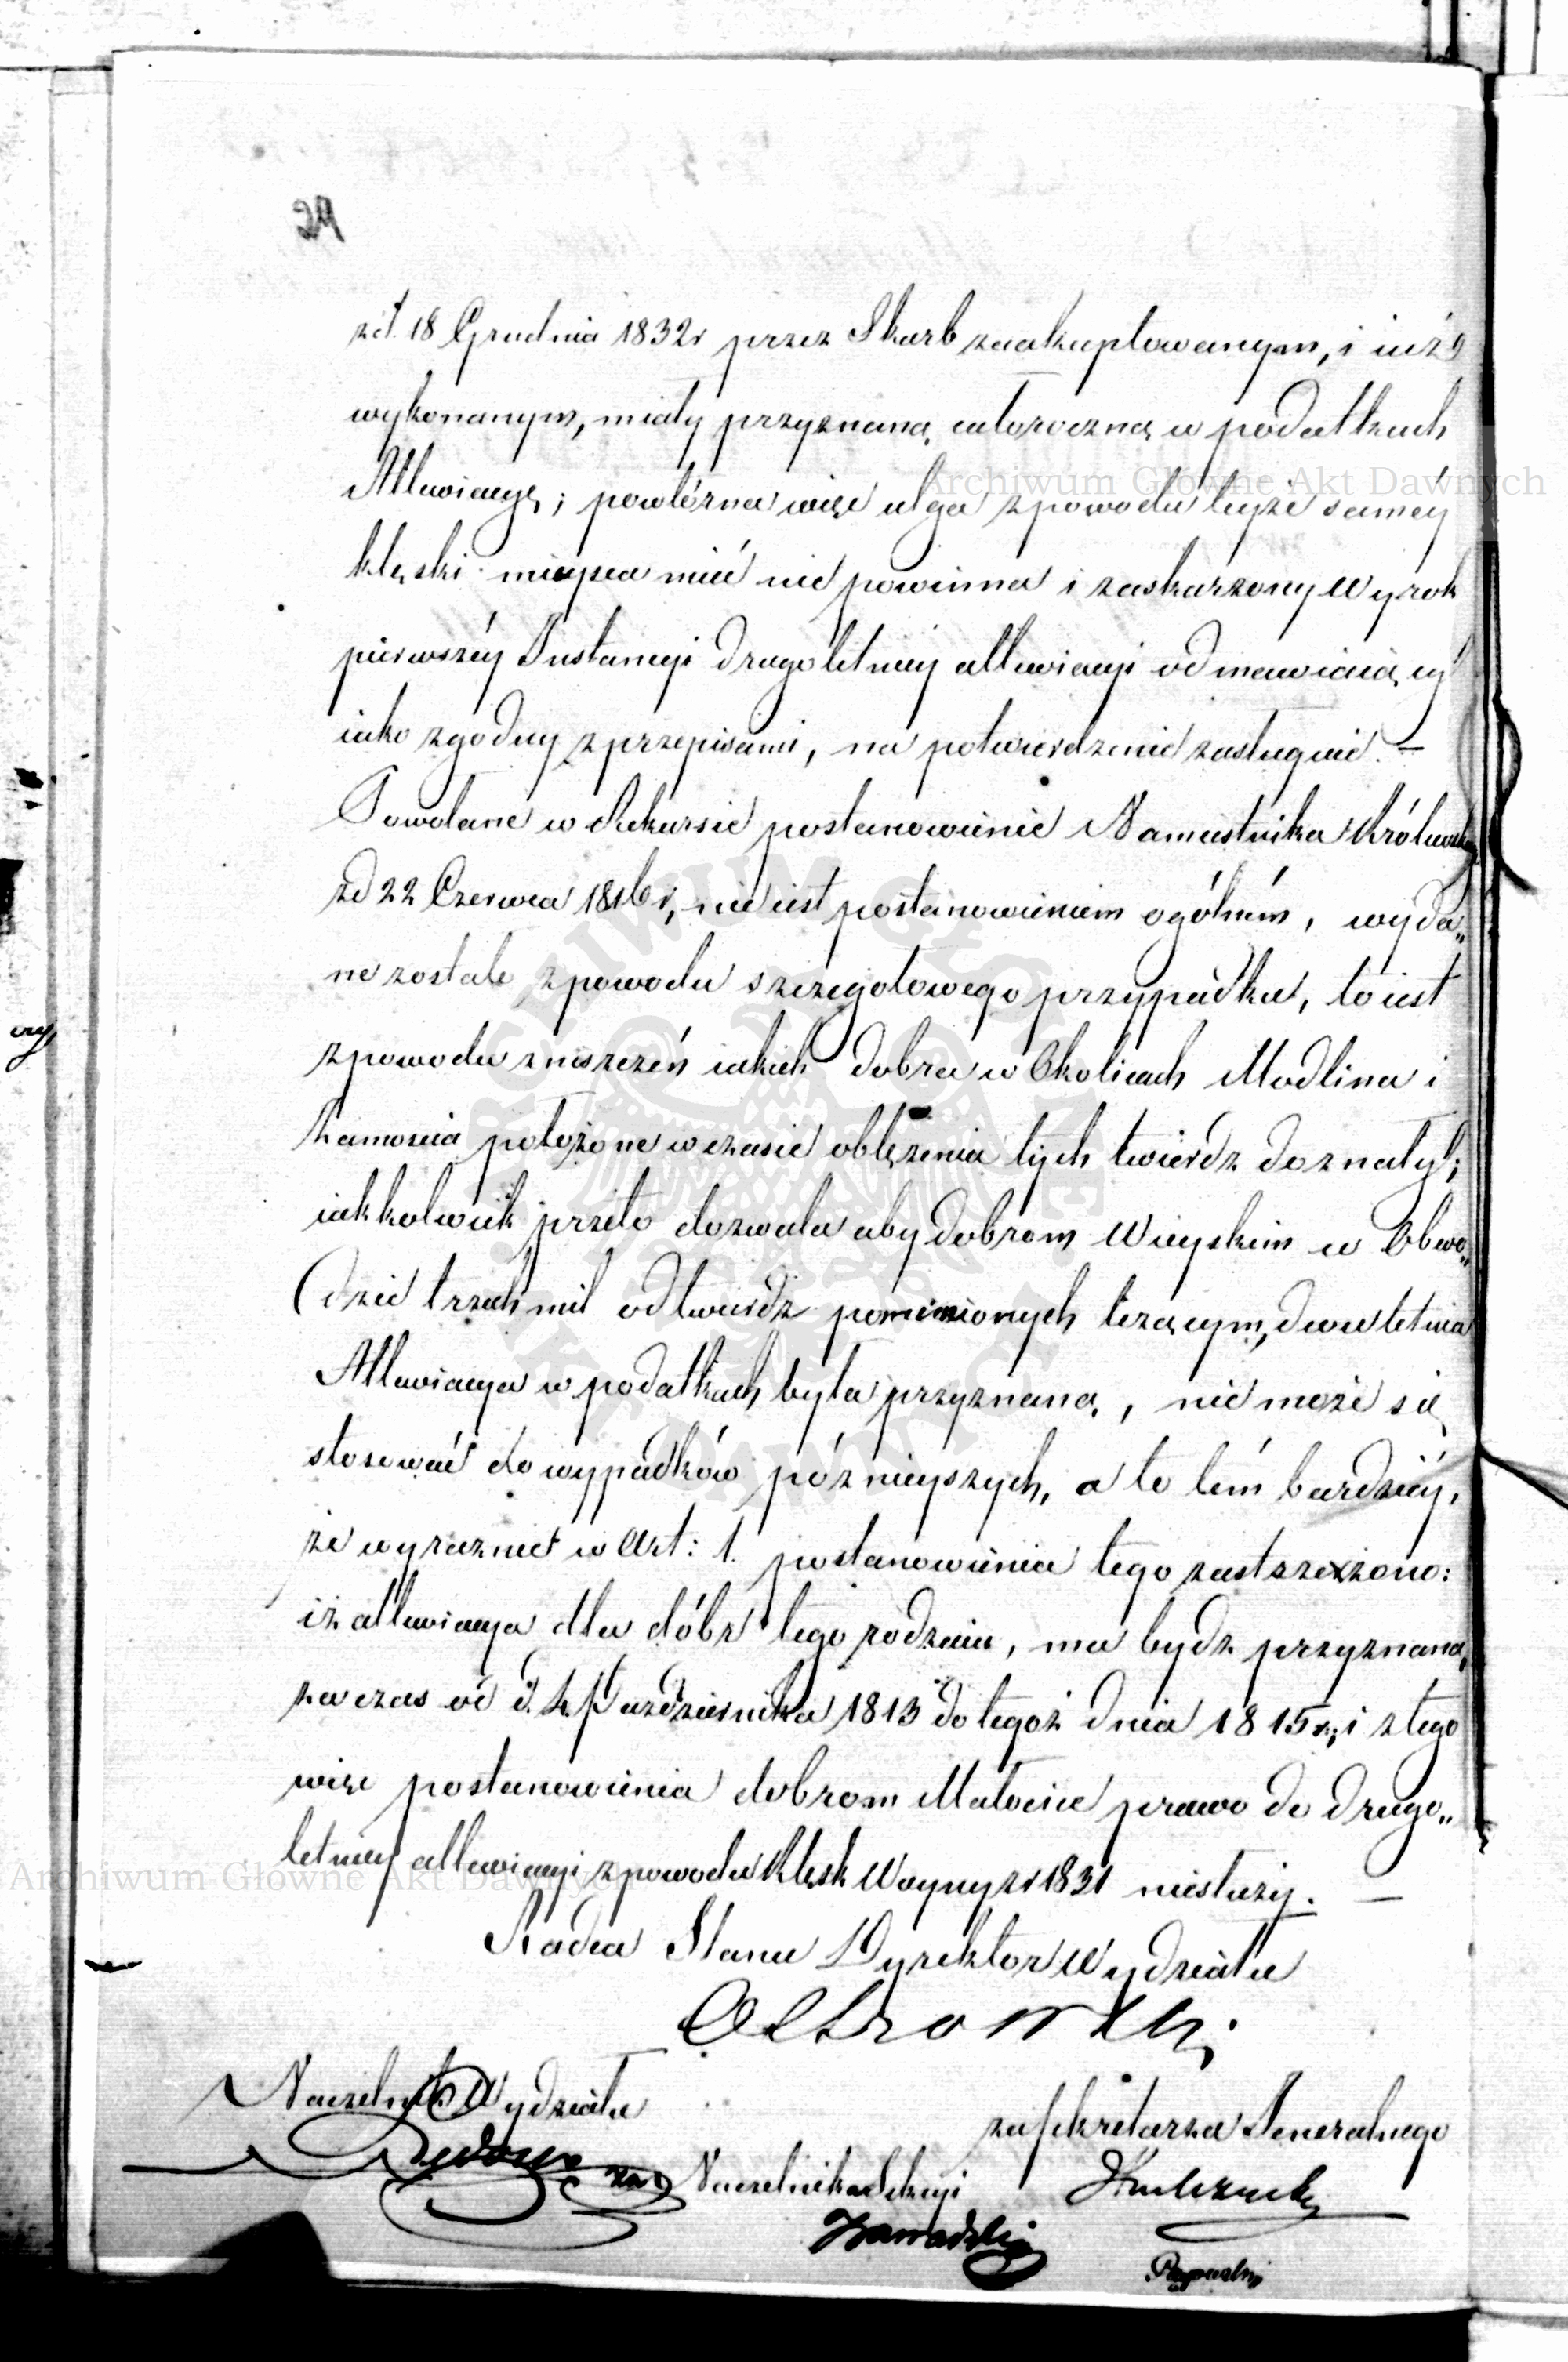 24
zd. 18 Grudnia 1832 r przez Skarb zaakceptowanym, i iuż
wykonanym, miały przyznaną całoroczną w podatkach
Allewiacyę; powtórna więc ulga z powodu teyże saméy
klęski mieysca mieć nie powinna i zaskarżony Wyrok
pierwszéy Instancyi drugoletniey allewiacyi odmawiaiący
iako zgodny z przepisami, na potwierdzenie zasługuie. —
Powołane w Rekursie postanowienie Namiestnika Królews
zd 22 Czerwca 1816 r, nie iest postanowieniem ogólném, wyda„
ne zostało z powodu szczegółowego przypadku, to iest
z powodu zniszczeń iakich dobra w Okolicach Modlina i
Zamościa położone w czasie oblężenia tych twierdz doznały;
iakkolwiek przeto dozwala aby dobrom Wieyskim w Obwo„
dzie trzech mil od twierdz pomienionych leżącym, dwuletnia
Allewiacya w podatkach była przyznaną, nie może się
stosować do wypadków późnieyszych, a to tém bardziéy,
że wyraźnie w Art: 1. postanowienia tego zastrzeżono:
iż allewiacya dla dóbr tego rodzaiu, ma bydź przyznaną
za czas od d. 1. Października 1813 do tegoż dnia 1815 r, i z tego
więc postanowienia dobrom Małocice prawo do drugo„
letniey allewiacyi z powodu Klęsk Woyny z r 1831 niesłuży. —
Radca Stanu Dyrektor Wydziału
Ostrowski
Naczelnik Wydziału
za Sekretarza Jeneralnego
za Naczelnika Sekcyi
Zawadzki
Archiwum Główne Akt Dawnych
Archiwum Główne Akt Dawnych